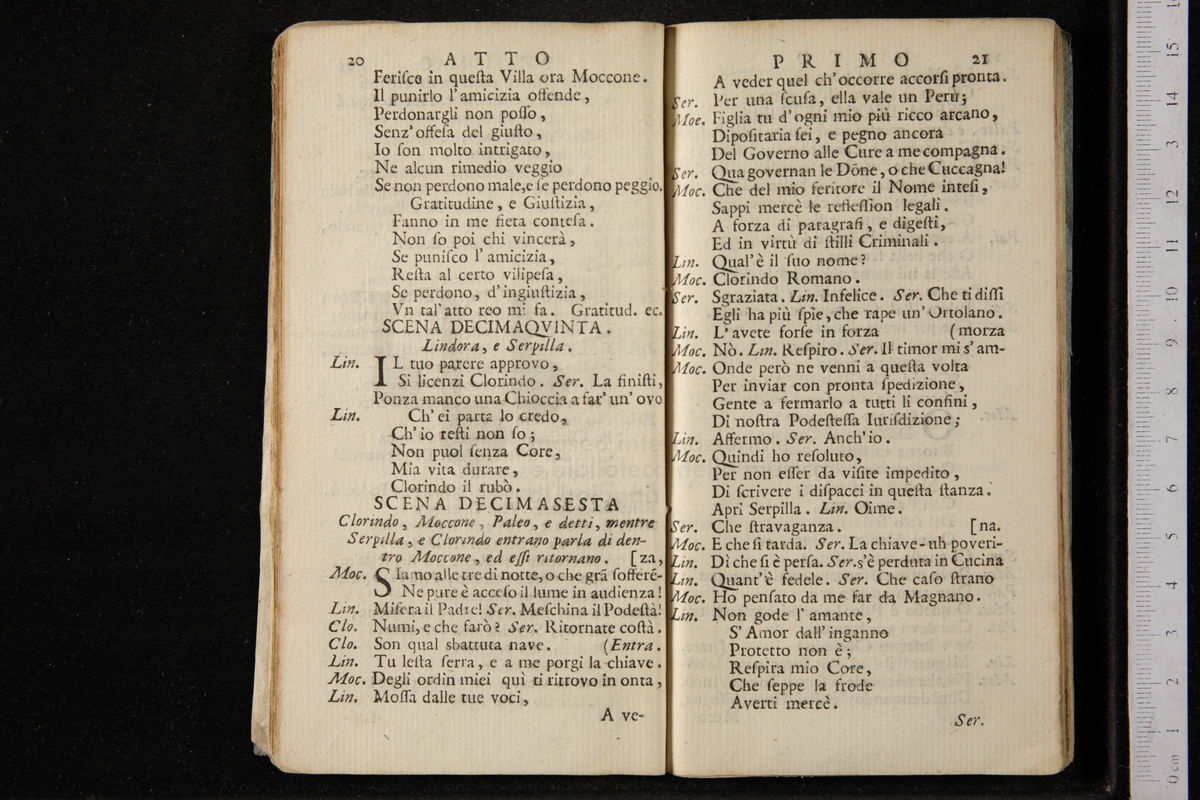 20 ATTO
Feriſce in queſta Villa ora Moccone.
Il punirlo l'amicizia offende,
Perdonargli non poſſo,
Senz'offeſa del giuſto,
Io ſon molto intrigato,
Ne alcun rimedio veggio
Se non perdono male, e ſe perdono peggio.
Gratitudine, e Giuſtizia,
Fanno in me fiera conteſa.
Non ſo poi chi vincerà,
Se puniſco l'amicizia,
Reſta al certo vilipeſa,
Se perdono, d'ingiuſtizia,
Vn tal'atto reo mi fa. Gratitud. ec.
SCENA DECIMAQVINTA.
Lindora, e Serpilla.
Lin. IL tuo parere approvo,
Si licenzi Clorindo. Ser. La finiſti,
Ponza manco una Chioccia a far' un' ovo
Lin. Ch'ei parta lo credo,
Ch'io reſti non ſo;
Non puol ſenza Core,
Mia vita durare,
Clorindo il rubò.
SCENA DECIMASESTA
Clorindo, Moccone, Paleo, e detti, mentre
Serpilla, e Clorindo entrano parla di den-
tro Moccone, ed eſſi ritornano. [za,
Moc. Siamo alle tre di notte, o che grā ſofferē-
Ne pure è acceſo il lume in audienza!
Lin. Miſera il Padre! Ser. Meſchina il Podeſtà!
Clo. Numi, e che farò? Ser. Ritornate coſtà.
Clo. Son qual sbattuta nave. (Entra.
Lin. Tu leſta ſerra, e a me porgi la chiave.
Moc. Degli ordin miei quì ti ritrovo in onta,
Lin. Moſſa dalle tue voci,
A ve-
PRIMO 21
A veder quel ch'occorre accorſi pronta.
Ser. Per una ſcuſa, ella vale un Perù;
Moc. Figlia tu d'ogni mio più ricco arcano,
Dipoſitaria ſei, e pegno ancora
Del Governo alle Cure a me compagna.
Ser. Qua governan le Dōne, o che Cuccagna!
Moc. Che del mio feritore il Nome inteſi,
Sappi mercè le refleſſion legali.
A forza di paragrafi, e digeſti,
Ed in virtù di ſtilli Criminali.
Lin. Qual'è il ſuo nome?
Moc. Clorindo Romano.
Ser. Sgraziata. Lin. Infelice. Ser. Che ti diſſi
Egli ha più ſpie, che rape un'Ortolano.
Lin. L'avete forſe in forza (morza
Moc. Nò. Lin. Reſpiro. Ser. Il timor mi s'am-
Moc. Onde però ne venni a queſta volta
Per inviar con pronta ſpedizione,
Gente a fermarlo a tutti li confini,
Di noſtra Podeſteſſa Iuriſdizione;
Lin. Affermo. Ser. Anch'io.
Moc. Quindi ho reſoluto,
Per non eſſer da viſite impedito,
Di ſcrivere i diſpacci in queſta ſtanza.
Apri Serpilla. Lin. Oime.
Ser. Che ſtravaganza. [na.
Moc. E che ſi tarda. Ser. La chiave - uh poveri-
Lin. Dì che ſi è perſa. Ser. s'è perduta in Cucina
Lin. Quant'è fedele. Ser. Che caſo ſtrano
Moc. Ho penſato da me far da Magnano.
Lin. Non gode l'amante,
S'Amor dall'inganno
Protetto non è;
Reſpira mio Core,
Che ſeppe la frode
Averti mercè.
Ser.